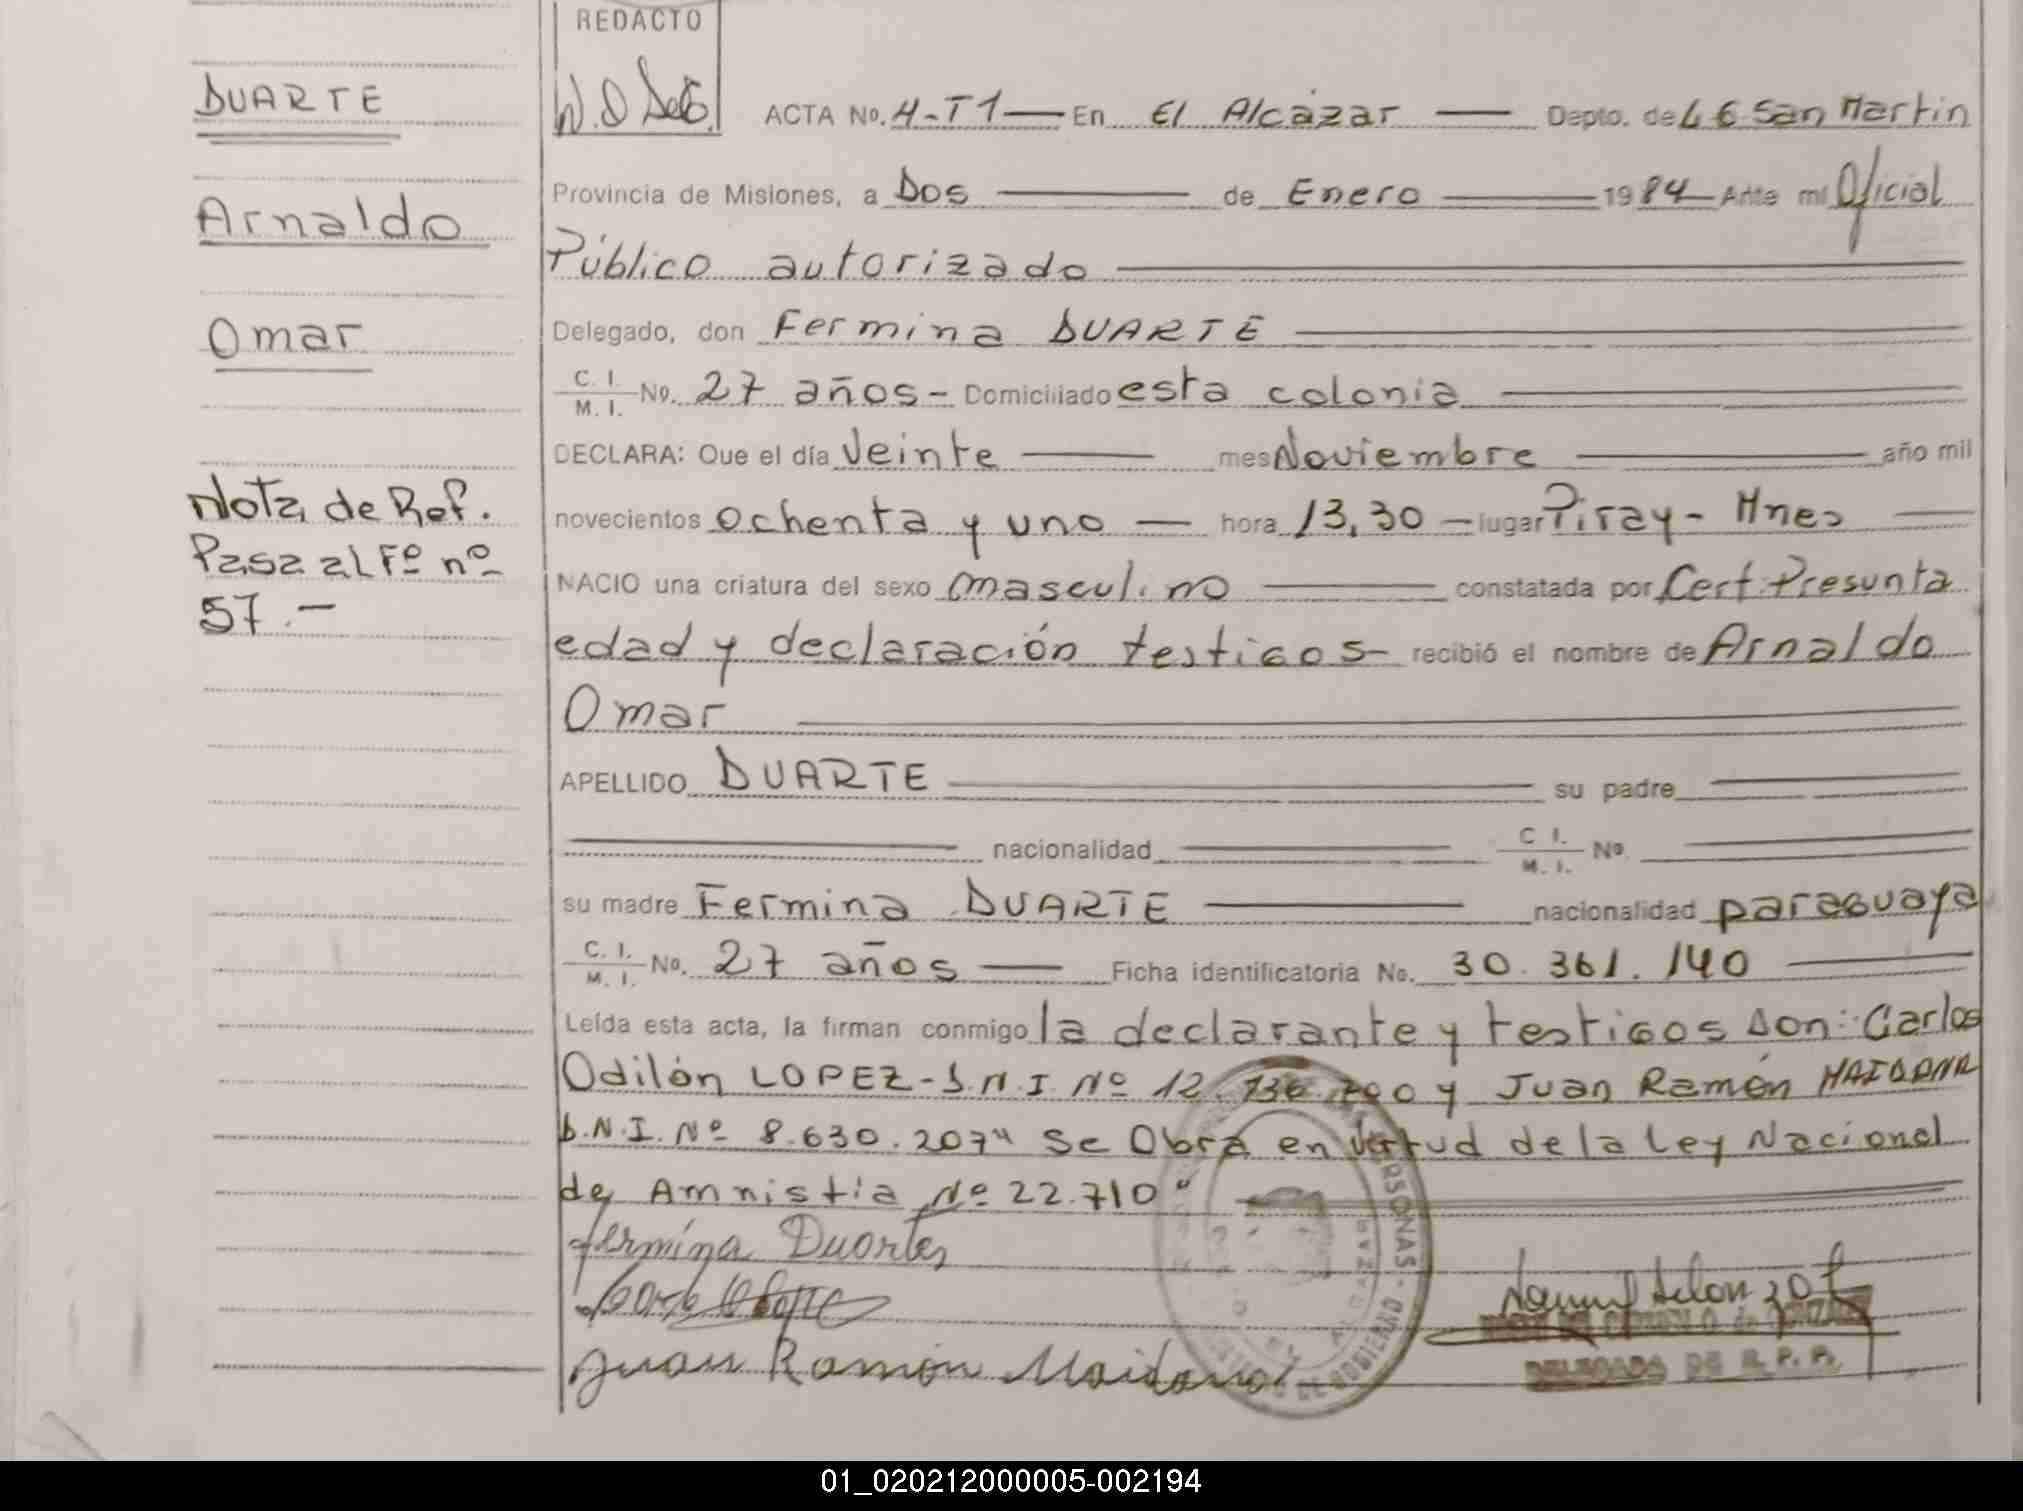 REDACTO
DUARTE
Arnaldo
Omar
Nota de Ref.
Pasa al Fº nº
57.-
ACTA No. 4-T1 — En El Alcázar — Depto. de L G San Martin
Provincia de Misiones, a Dos — de Enero — 1984 — Ante mi Oficial
Público autorizado
Delegado, don Fermina DUARTE
C. I. / M. I. No. 27 años - Domiciliado esta colonia
DECLARA: Que el día Veinte — mes Noviembre — año mil
novecientos ochenta y uno — hora 13,30 — lugar Piray - Mnes
NACIO una criatura del sexo masculino — constatada por Cert. Presunta
edad y declaración testigos - recibió el nombre de Arnaldo
Omar
APELLIDO DUARTE — su padre
nacionalidad C I. / M. I. No.
su madre Fermina DUARTE — nacionalidad paraguaya
C. I. / M. I. No. 27 años — Ficha identificatoria No. 30.361.140
Leída esta acta, la firman conmigo la declarante y testigos son: Carlos
Odilón LOPEZ - D.N.I. Nº 12.736.700 y Juan Ramón MAIDANA
D.N.I. Nº 8.630.207" Se Obra en virtud de la Ley Nacional
de Amnistía Nº 22.710"
Fermina Duartes
Juan Ramón Maidana
DELEGADA DE R. P. P.
PERSONAS - GOBIERNO
01_020212000005-002194